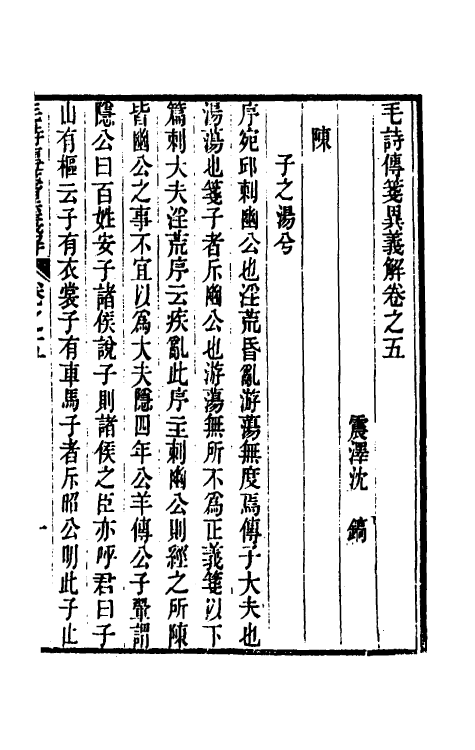 毛詩傳箋異義解卷之五
震澤沈　鎬
陳
子之湯兮
序宛邱刺幽公也淫荒昏亂游蕩無度焉傳子大夫也
湯蕩也箋子者斥幽公也游蕩無所不為正義箋以下
篇刺大夫淫荒序云疾亂此序主刺幽公則經之所陳
皆幽公之事不宜以為大夫隱四年公羊傳公子翬謂
隱公曰百姓安子諸侯說子則諸侯之臣亦呼君曰子
山有樞云子有衣裳子有車馬子者斥昭公明此子止
毛詩傳箋異義解　卷之五　一